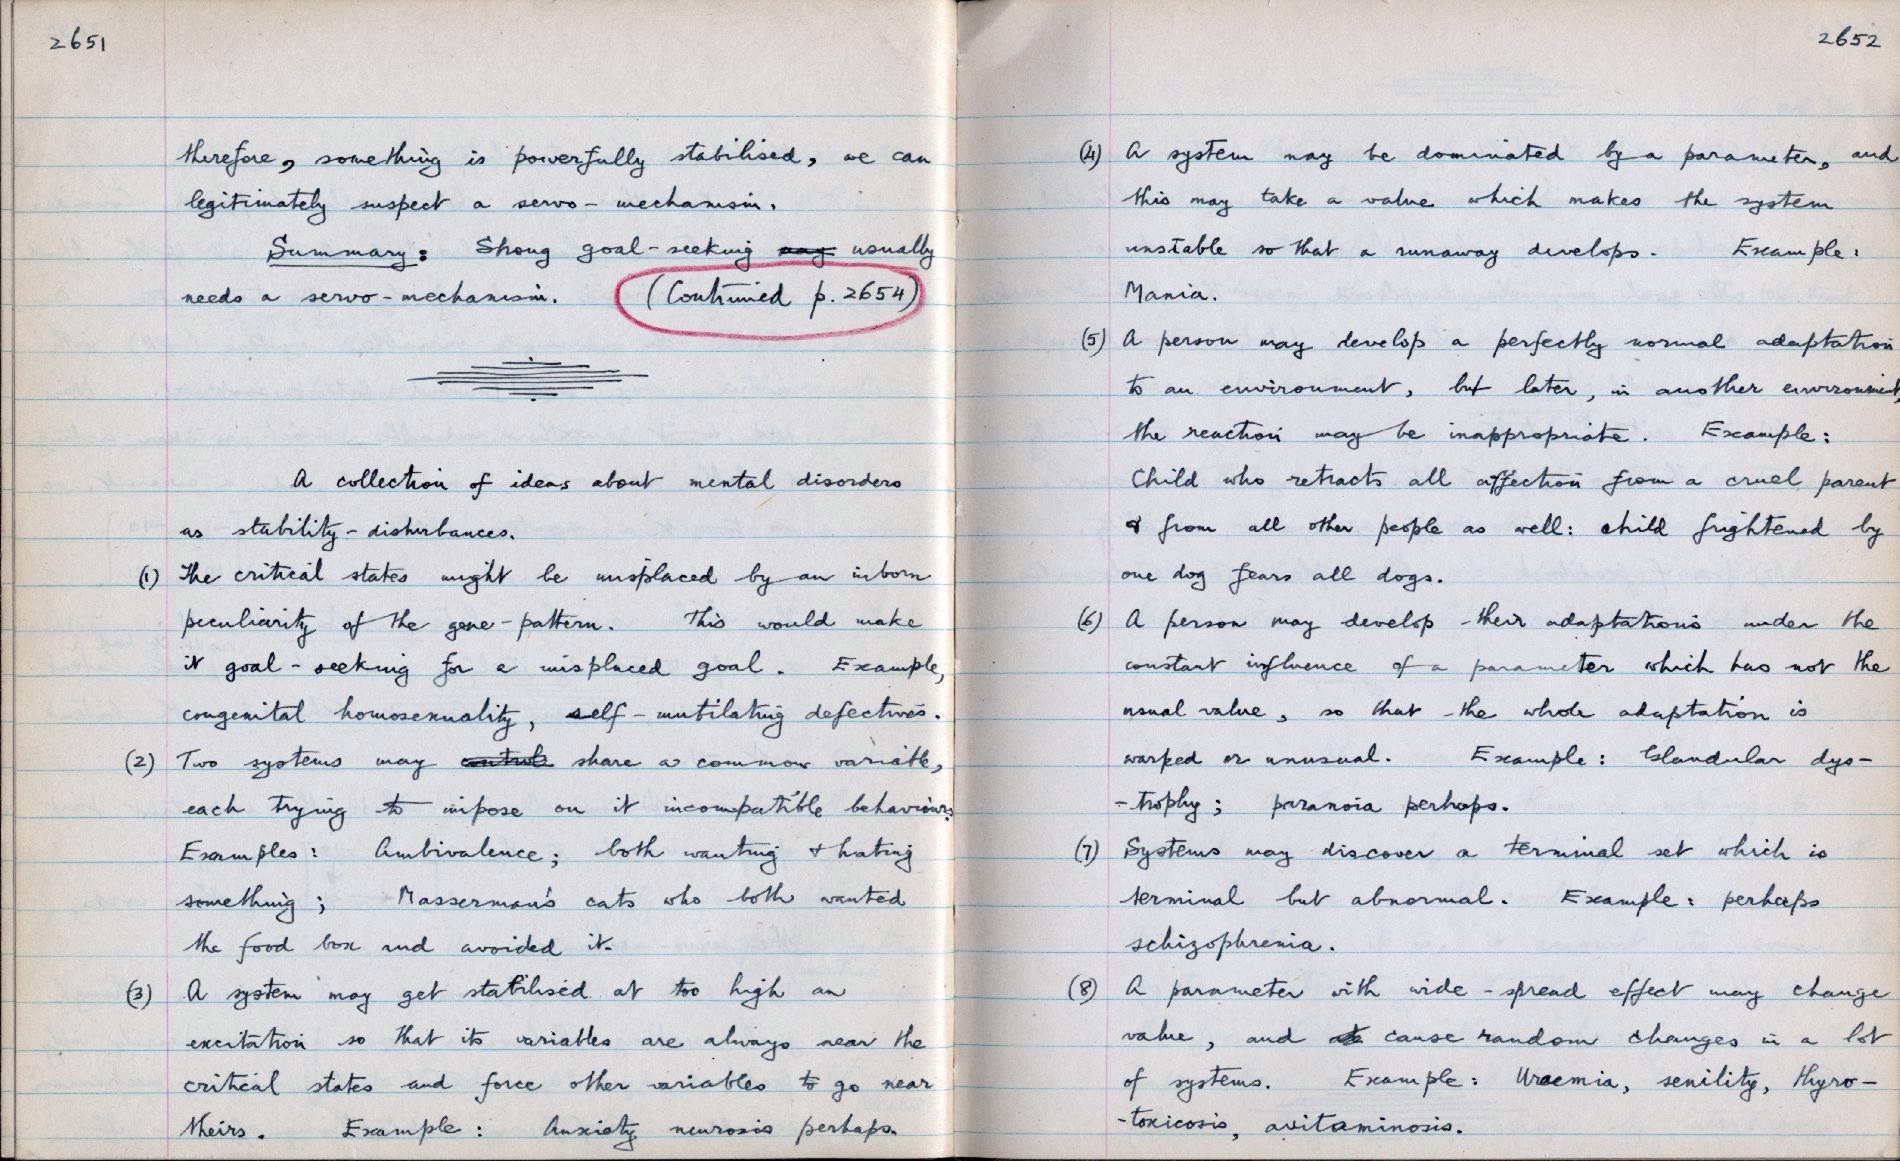 2651
therefore, something is powerfully stabilised, we can
legitimately suspect a servo-mechanism.
Summary: Strong goal-seeking may usually
needs a servo-mechanism. (Continued p. 2654)
A collection of ideas about mental disorders
as stability-disturbances.
(1) The critical states might be misplaced by an inborn
peculiarity of the gene-pattern. This would make
it goal-seeking for a misplaced goal. Example,
congenital homosexuality, self-mutilating defectives.
(2) Two systems may control share a common variable,
each trying to impose on it incompatible behaviours.
Examples: Ambivalence; both wanting & hating
something; Masserman's cats who both wanted
the food box and avoided it.
(3) A system may get stabilised at too high an
excitation so that its variables are always near the
critical states and force other variables to go near
theirs. Example: Anxiety neurosis perhaps.
2652
(4) A system may be dominated by a parameter, and
this may take a value which makes the system
unstable so that a runaway develops. Example:
Mania.
(5) A person may develop a perfectly normal adaptation
to an environment, but later, in another environment,
the reaction may be inappropriate. Example:
Child who retracts all affection from a cruel parent
& from all other people as well: child frightened by
one dog fears all dogs.
(6) A person may develop their adaptations under the
constant influence of a parameter which has not the
usual value, so that the whole adaptation is
warped or unusual. Example: Glandular dys-
-trophy; paranoia perhaps.
(7) Systems may discover a terminal set which is
terminal but abnormal. Example: perhaps
schizophrenia.
(8) A parameter with wide-spread effect may change
value, and cause random changes in a lot
of systems. Example: Uraemia, senility, thyro-
-toxicosis, avitaminosis.